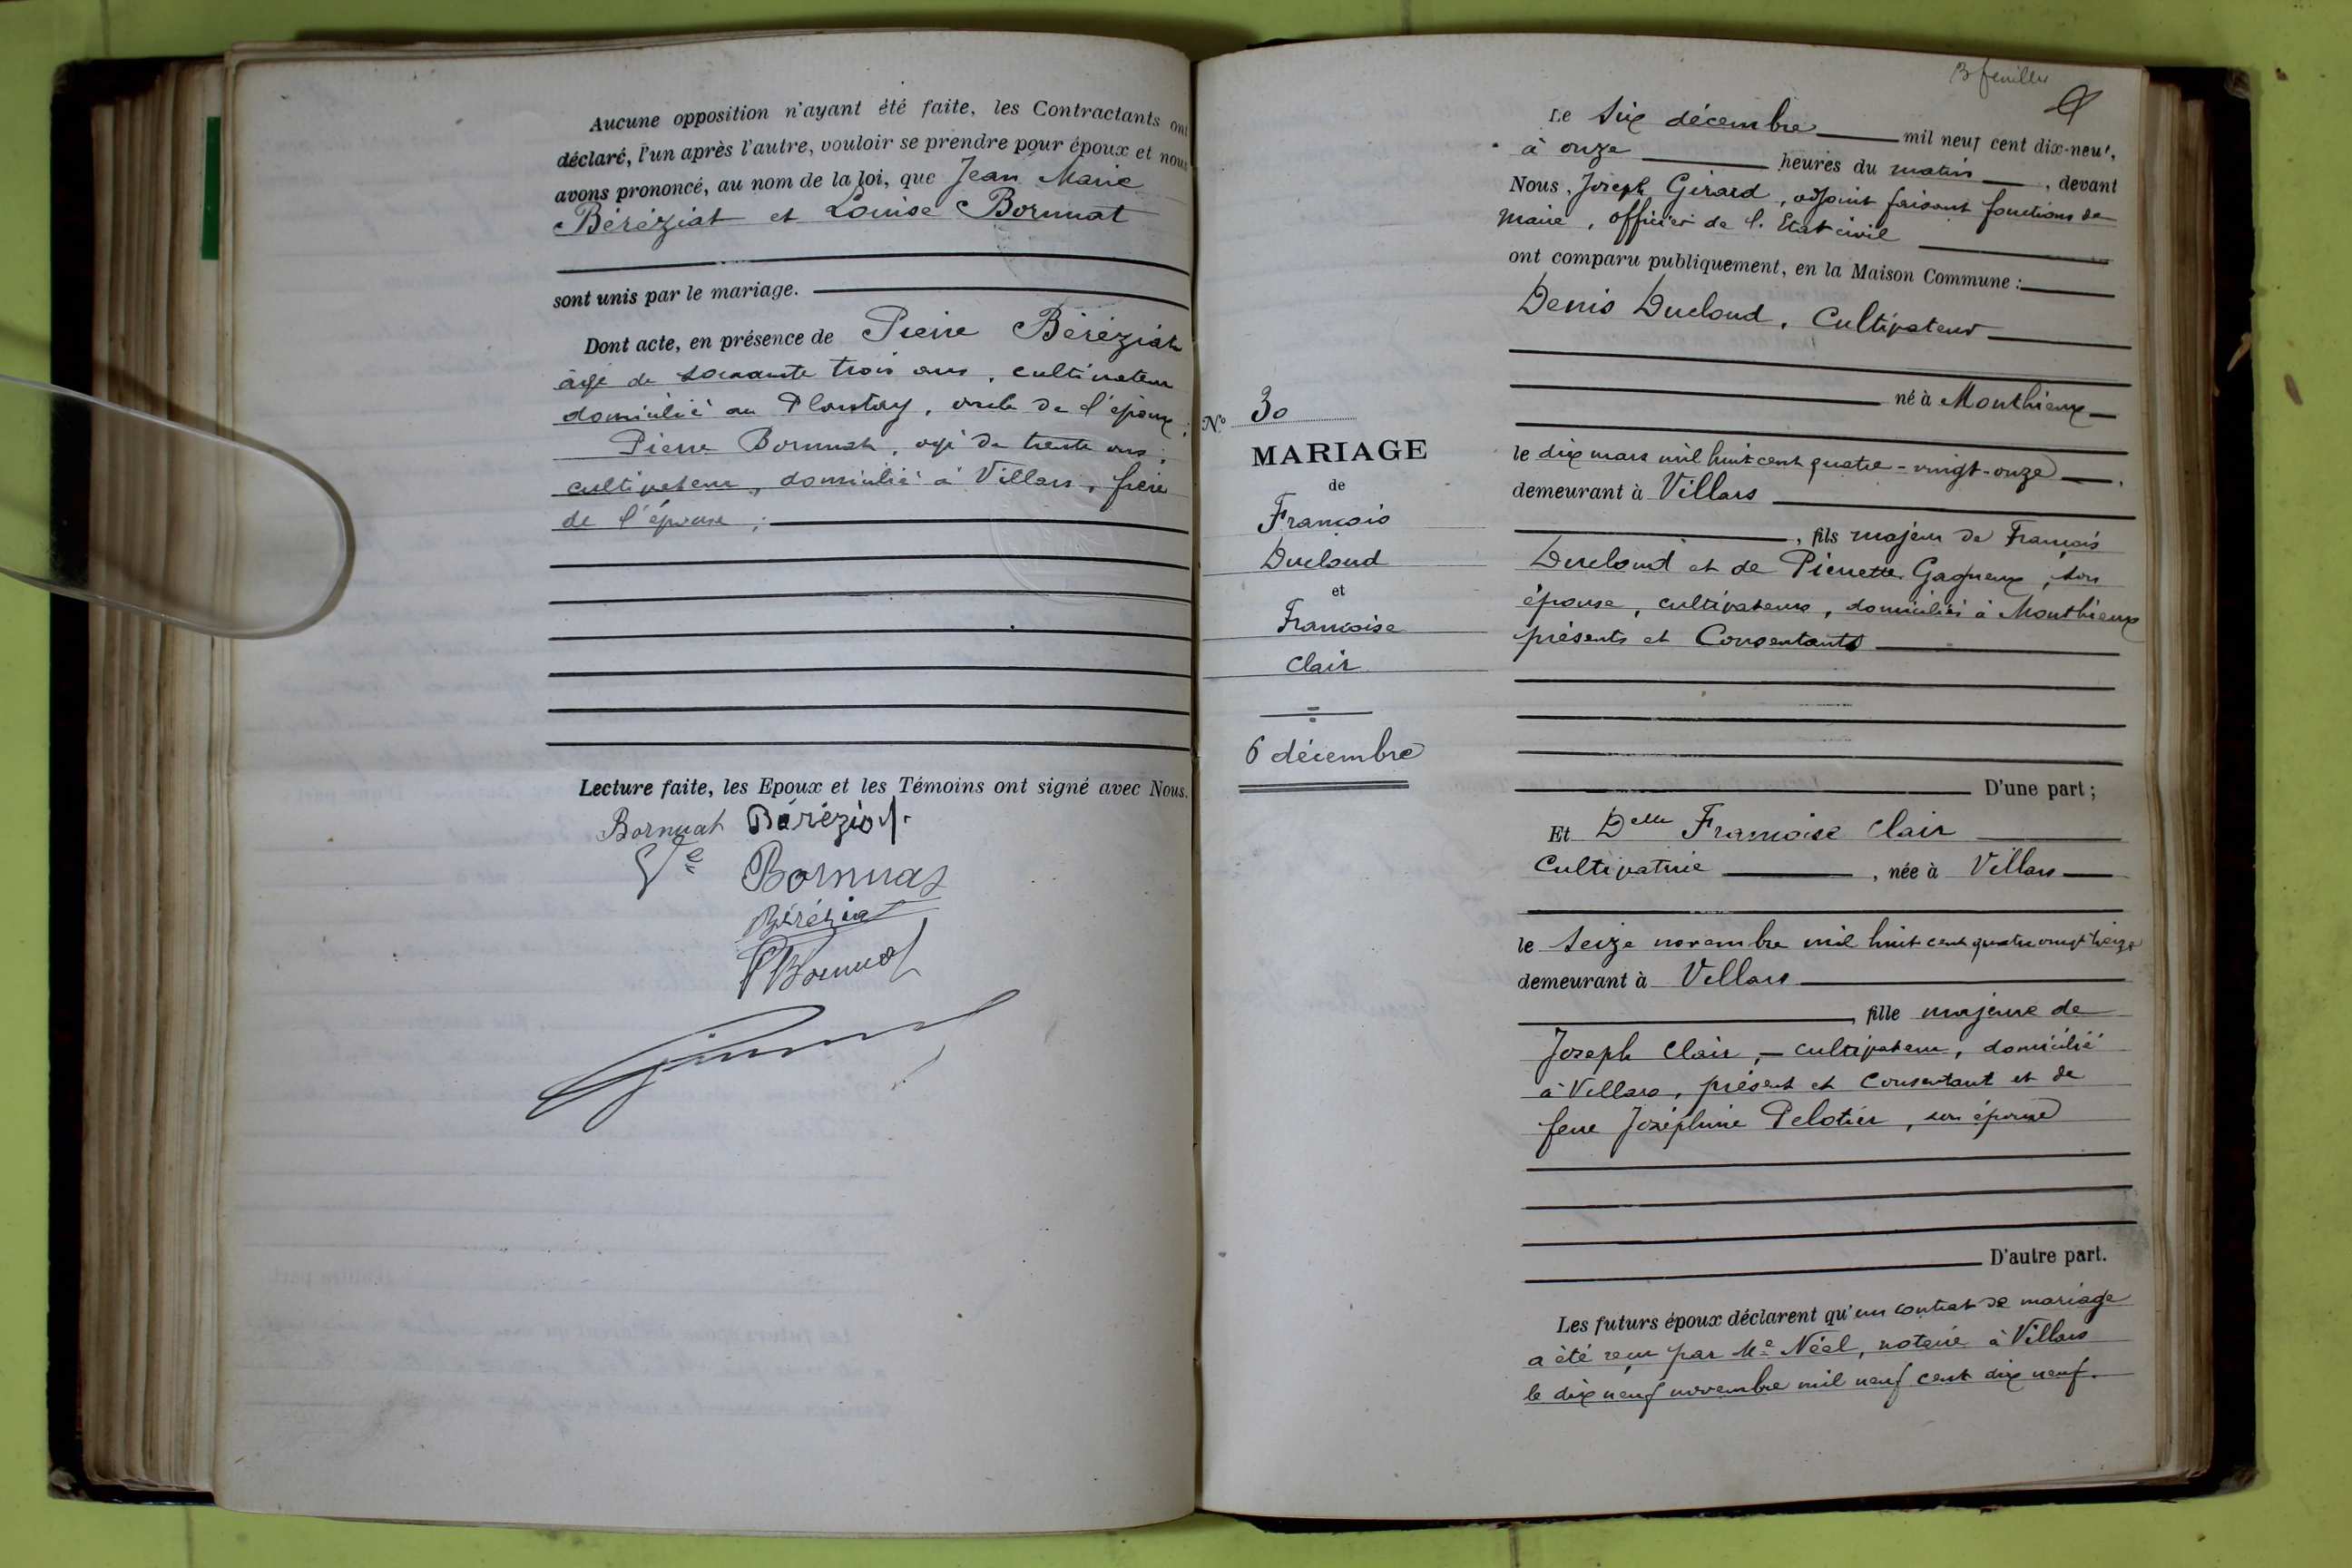 Aucune opposition n'ayant été faite, les Contractants ont
déclaré, l'un après l'autre, vouloir se prendre pour époux et nous
avons prononcé, au nom de la loi, que Jean Marie
Béréziat et Louise Bornuat
sont unis par le mariage.
Dont acte, en présence de Pierre Béréziat
âgé de soixante trois ans, cultivateur
domicilié au Plantay, oncle de l'époux;
Pierre Bornuat, âgé de trente ans,
cultivateur, domicilié à Villars, frère
de l'épouse;
Lecture faite, les Epoux et les Témoins ont signé avec Nous.
Bornuat Béréziat
Vᵉ Bornuat
Béréziat
P Bornuat
3 feuilles
Le Six décembre mil neuf cent dix-neuf,
à onze heures du matin, devant
Nous, Joseph Girard, adjoint faisant fonctions de
Maire, officier de l'Etat civil
ont comparu publiquement, en la Maison Commune :
Denis Ducloud, Cultivateur
né à Monthieux
le dix mars mil huit cent quatre-vingt-onze,
demeurant à Villars
, fils majeur de François
Ducloud et de Pierrette Gagneux, son
épouse, cultivateurs, domiciliés à Monthieux
présents et Consentants
D'une part;
Nº 30
MARIAGE
de
François
Ducloud
et
Françoise
Clair
6 décembre
Et Delle Françoise Clair
Cultivatrice, née à Villars
le Seize novembre mil huit cent quatre vingt treize
demeurant à Villars
, fille majeure de
Joseph Clair, — cultivateur, domicilié
à Villars, présent et Consentant et de
feue Joséphine Pelotier, son épouse
D'autre part.
Les futurs époux déclarent qu'un contrat de mariage
a été reçu par Mᵉ Néel, notaire à Villars
le dix neuf novembre mil neuf cent dix neuf.